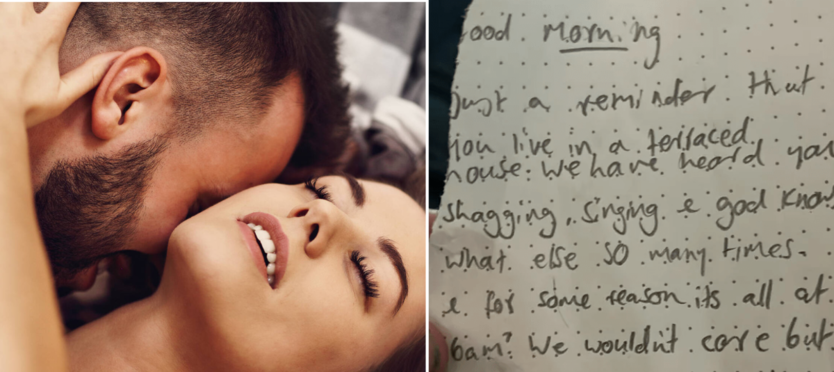 ood morning
Just a reminder that
you live in a terraced
house. We have heard you
shagging, singing & god know
what else so many times.
& for some reason its all at
6am? We wouldn't care but